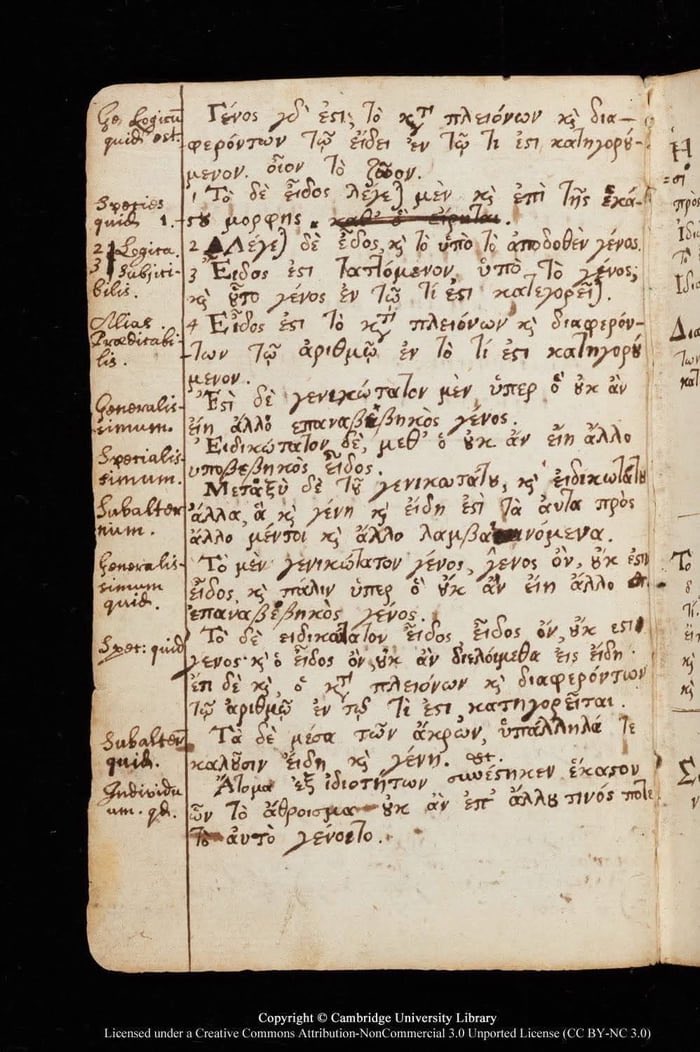 Ge. Logicū
quid est.
Γένος γδ ἐστι, τὸ κτ πλειόνων κ δια-
φερόντων τῷ εἴδει ἐν τῷ τι ἐστι κατηγορού-
μενον. οἷον τὸ ζῶον.
Species
quid 1.
1 Τὸ δὲ εἶδος λέγε) μὲν κ ἐπὶ τῆς ἑκά-
στου μορφης.
2 Logica.
3 Subjici-
bilis.
2 Λέγε) δὲ εἶδος, κ τὸ ὑπὸ τὸ ἀποδοθὲν γένος.
3 Εἶδος ἐστι ταττόμενον ὑπὸ τὸ γένος;
κ γένος ἐν τῷ τί ἐστι κατεγορεῖ).
Alias
Prædicabi-
lis.
4 Εἶδος ἐστι τὸ κτ πλειόνων κ διαφερόν-
των τῷ ἀριθμῷ ἐν τὸ τί ἐστι κατηγορού
μενον.
Generalis-
simum.
Ἐστὶ δὲ γενικώτατον μὲν ὑπερ ὃ οὐκ ἀν
εἴη ἄλλο επαναβεβηκὸς γένος.
Specialis-
simum.
Ἐιδικώτατον δὲ, μεθ' ὃ οὐκ ἀν εἴη ἄλλο
υποβεβηκὸς εἶδος.
Subalter
num.
Μεταξὺ δὲ τοῦ γενικωτατου, κ εἰδικωτατου
ἄλλα, ἃ κ γένη κ εἴδη ἐστὶ τὰ ἀυτα πρὸς
ἄλλο μέντοι κ ἄλλο λαμβανόμενα.
Generalis-
simum
quid.
Τὸ μὲν γενικώτατον γένος, γενος ὂν, οὐκ ἐστι
εἶδος, κ πάλιν ὑπερ ὃ οὐκ ἀν εἴη ἄλλο
ἐπαναβεβηκὸς γένος.
Spec: quid
Τὸ δὲ ειδικώτατον εἶδος, εἶδος ὂν, οὐκ εστι
γενος κ ὃ εἶδος ὂν, οὐκ ἀν διελοίμεθα εἰς εἴδη.
ἐπι δὲ κ, ὃ κτ πλειόνων κ διαφερόντων
τῷ ἀριθμῷ ἐν τῷ τί ἐστι, κατηγορεῖται.
Subalter
quid.
Τὰ δὲ μέσα τῶν ἄκρων, ὑπάλληλά τε
καλοῦσιν εἴδη κ γένη.
Individu
um. qd.
Ἄτομα ἐξ ἰδιοτήτων συνέστηκεν ἕκαστον
ὧν τὸ ἄθροισμα οὐκ ἀν ἐπ' ἄλλου τινός ποτε
τὸ ἀυτὸ γένοιτο.
Copyright © Cambridge University Library
Licensed under a Creative Commons Attribution-NonCommercial 3.0 Unported License (CC BY-NC 3.0)